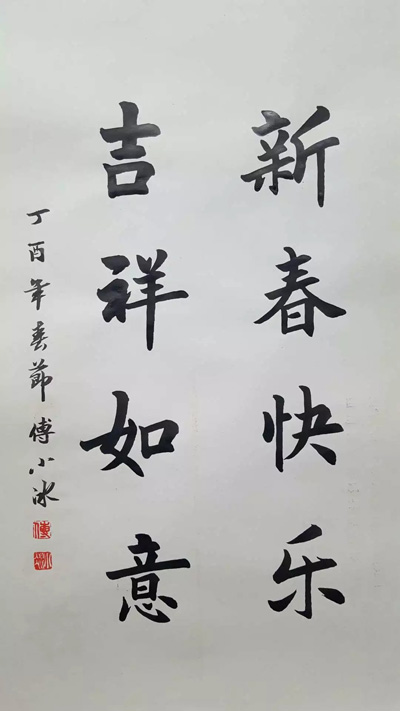 新春快乐
吉祥如意
丁酉年春節 傅小冰